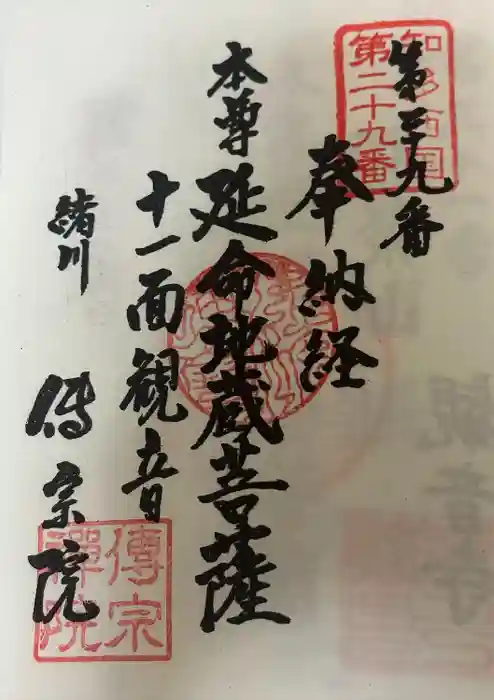 知多西国
第二十九番
第二十九番
奉納経
本尊 延命地蔵菩薩
十一面観音
緒川 傳宗院
傳宗
禪院